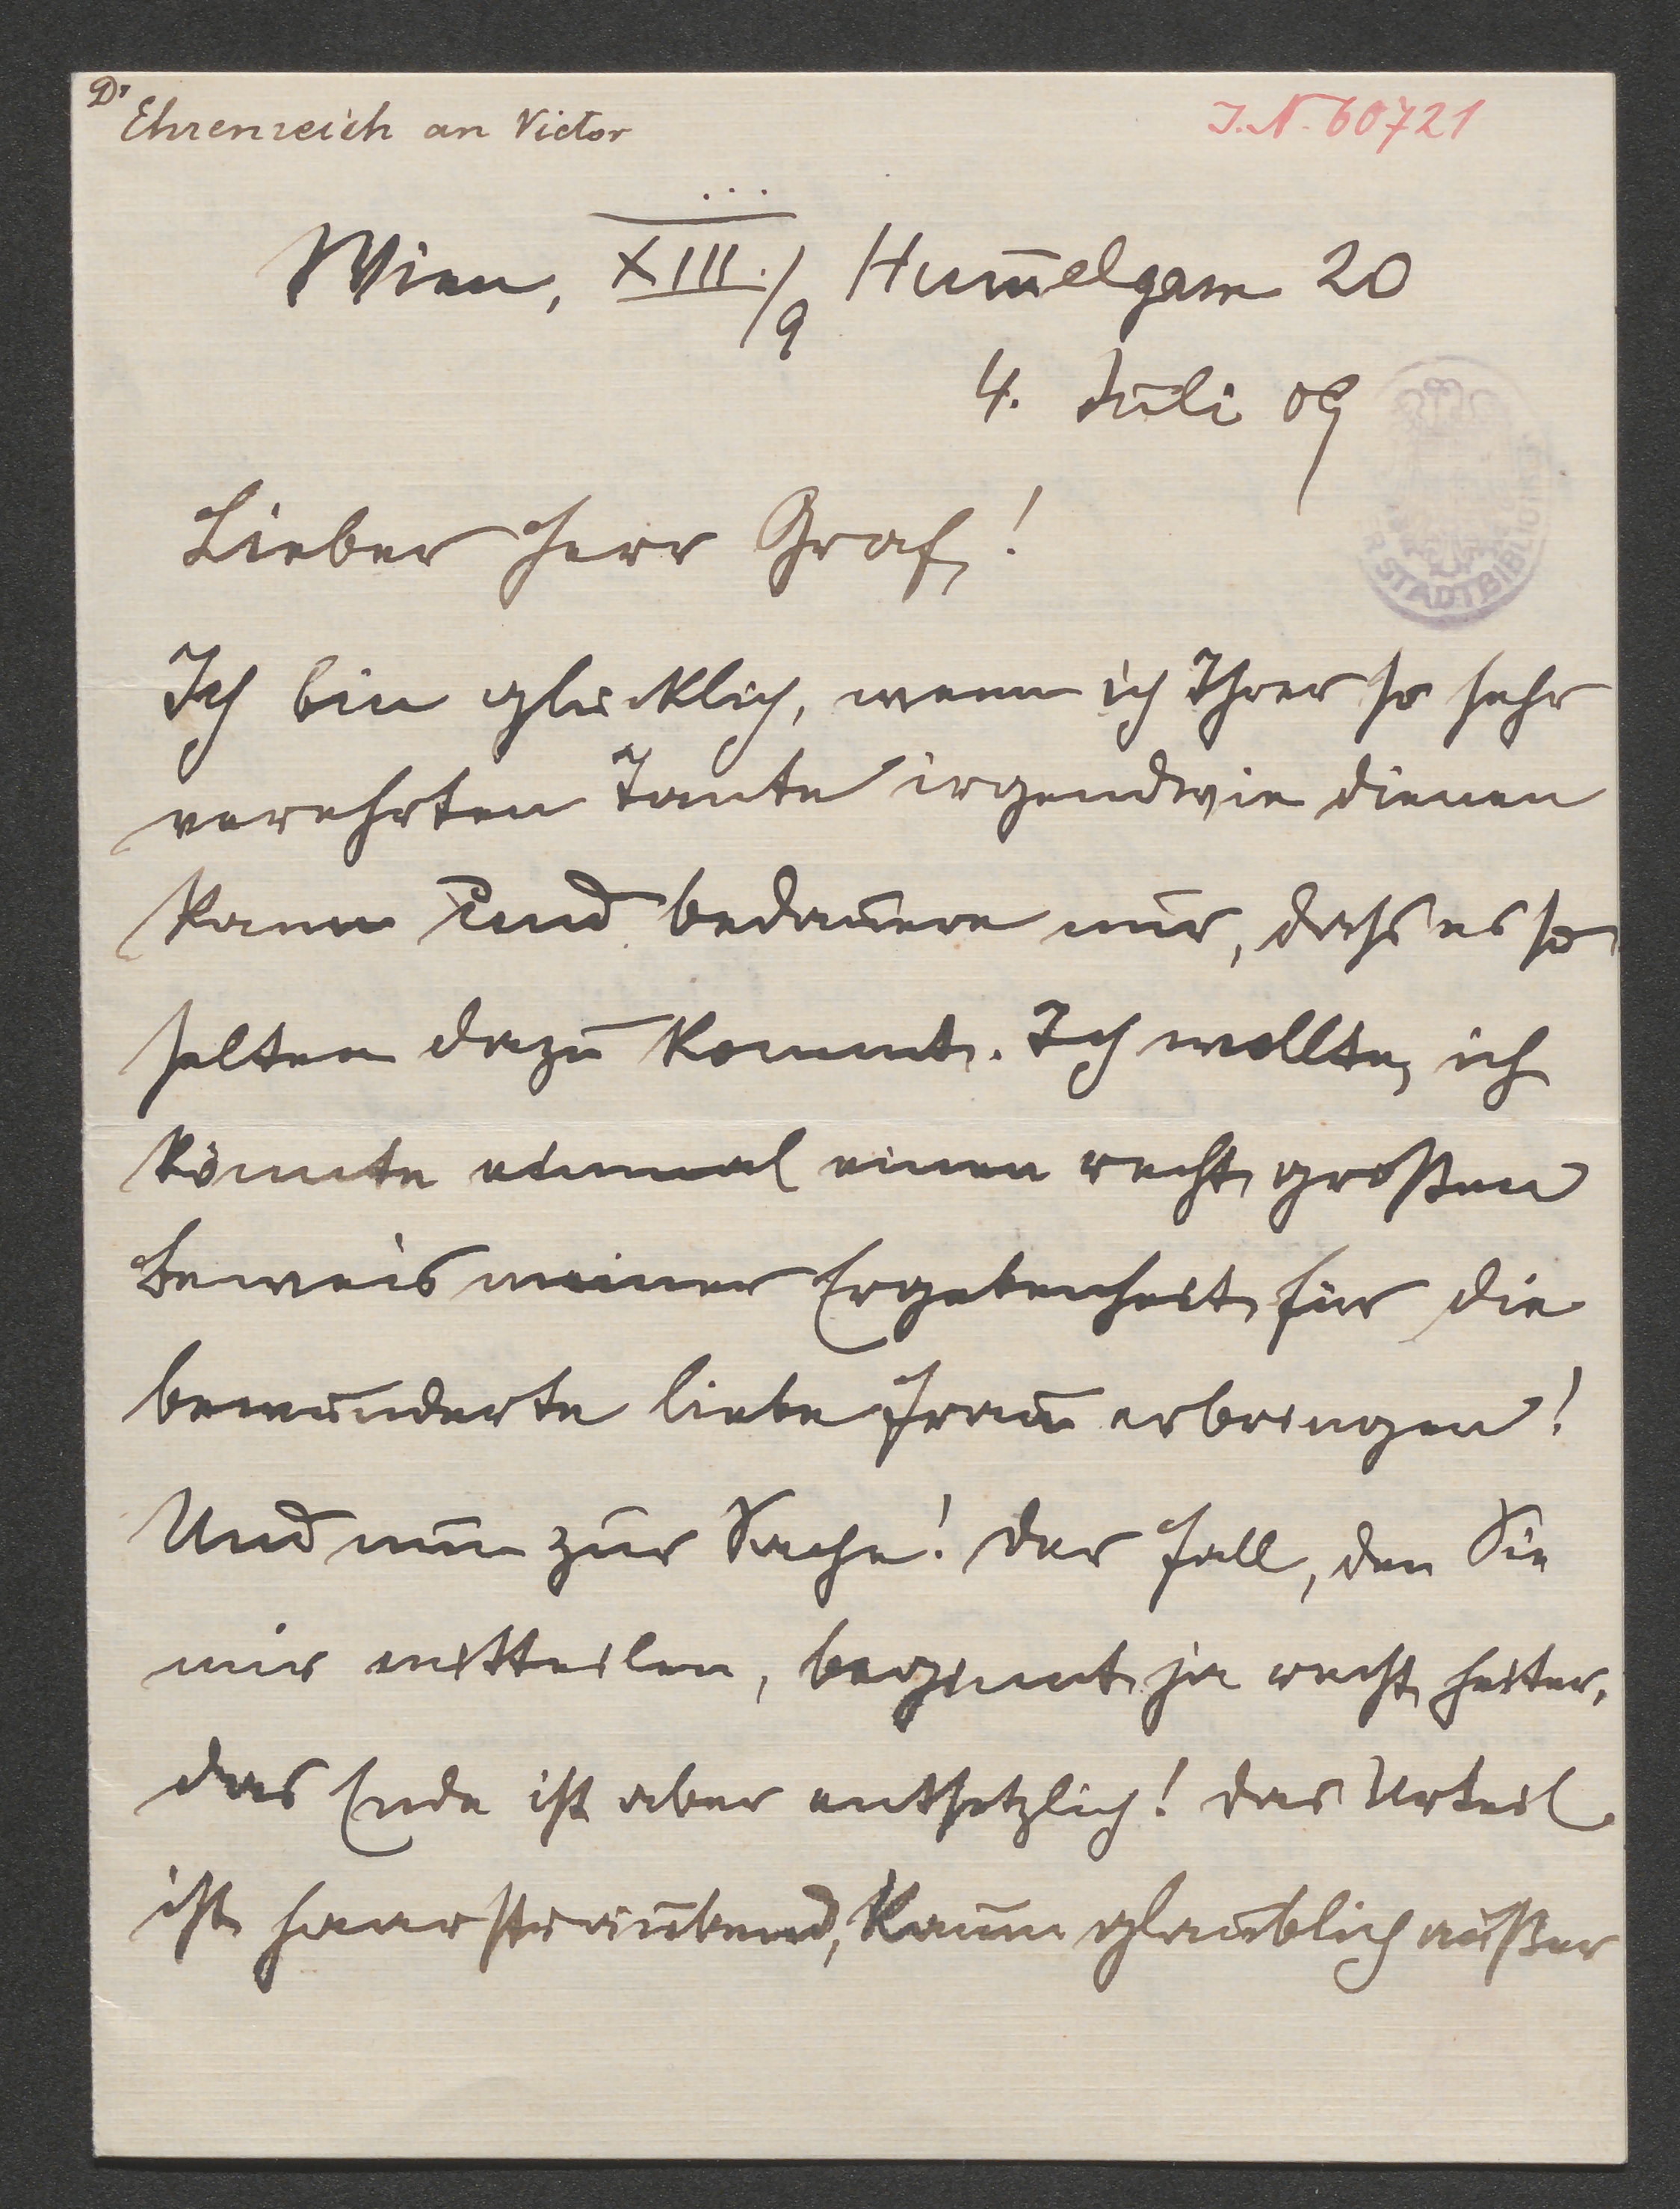 Dr Ehrenreich an Victor
I.N. 60721
Wien, XIII./9 Hum̄elgasse 20
4. Juli 09
STADTBIBLIOTHEK
Lieber Herr Graf!
Ich bin glücklich, wenn ich Ihrer so sehr
verehrten Tante irgendwie dienen
kann und bedauere nur, dass es so
selten dazu kommt. Ich wollte, ich
könnte einmal einen recht großen
Beweis meiner Ergebenheit für die
bewunderte liebe Frau erbringen!
Und nun zur Sache! Der Fall, den Sie
mir mitteilen, beginnt ja recht heiter,
das Ende ist aber entsetzlich! Das Urteil
ist haarsträubend, kaum glaublich außer